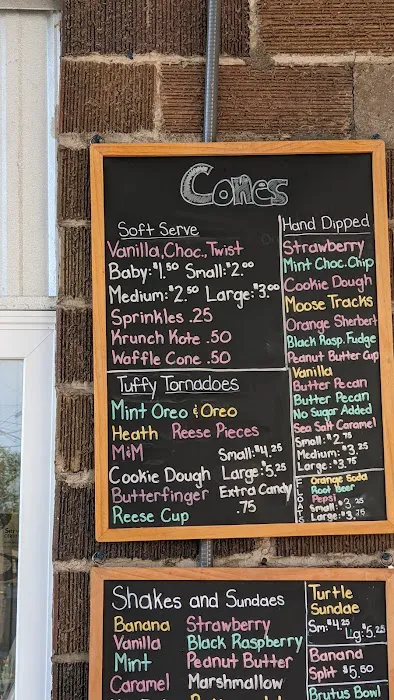 Cones
Soft Serve
Vanilla, Choc., Twist
Baby: $1.50 Small: $2.00
Medium: $2.50 Large: $3.00
Sprinkles .25
Krunch Kote .50
Waffle Cone .50
Tuffy Tornadoes
Mint Oreo & Oreo
Heath Reese Pieces
M&M Small: $4.25
Cookie Dough Large: $5.25
Butterfinger Extra Candy
.75
Reese Cup
Hand Dipped
Strawberry
Mint Choc. Chip
Cookie Dough
Moose Tracks
Orange Sherbert
Black Rasp. Fudge
Peanut Butter Cup
Vanilla
Butter Pecan
Butter Pecan
No Sugar Added
Sea Salt Caramel
Small: $2.75
Medium: $3.25
Large: $3.75
FLOATS
Orange Soda
Root Beer
Pepsi
Small: $3.25
Large: $3.75
Shakes and Sundaes
Banana Strawberry
Vanilla Black Raspberry
Mint Peanut Butter
Caramel Marshmallow
Turtle
Sundae
Sm: $4.25 Lg: $5.25
Banana
Split $5.50
Brutus Bowl